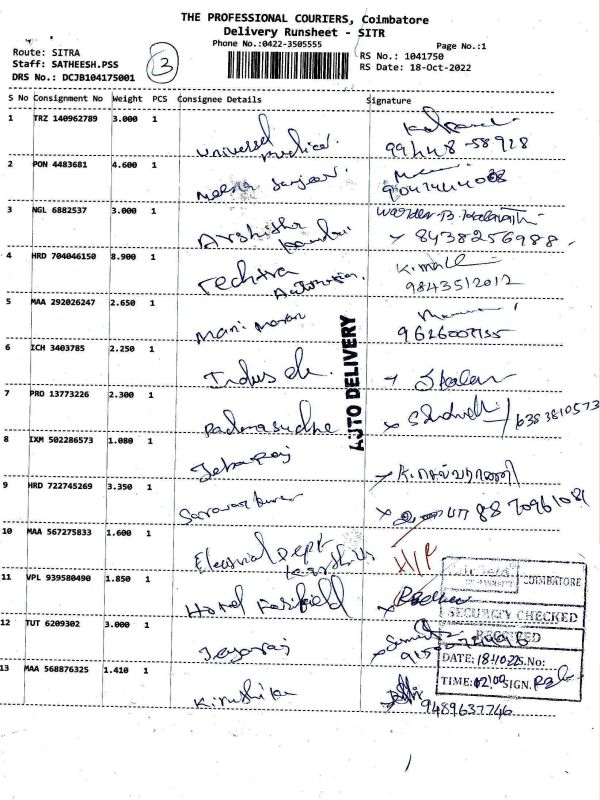 THE PROFESSIONAL COURIERS, Coimbatore
Delivery Runsheet - SITR
Phone No.:0422-3505555
Page No.:1
Route: SITRA
Staff: SATHEESH.PSS
DRS No.: DCJB104175001
3
RS No.: 1041750
RS Date: 18-Oct-2022
S No Consignment No Weight PCS Consignee Details Signature
1 TRZ 140962789 3.000 1
Universal Medical.
99448-58928
2 PON 4483681 4.600 1
Meena Sanjeev.
3 NGL 6882537 3.000 1
Arshitha
8438256988
4 HRD 704046150 8.900 1
Techtra Automation.
9843512012
5 MAA 292026247 2.650 1
Mani maran
AUTO DELIVERY
6 ICH 3403785 2.250 1
Indus
7 PRO 13773226 2.300 1
Padmasudha
6383810573
8 IXM 502286573 1.080 1
Jebaraj
9 HRD 722745269 3.350 1
Saravanakumar
8870961081
10 MAA 567275833 1.600 1
Electrical Dept
H/P
11 VPL 939580490 1.850 1
Hotel Fairfield
Radha
COIMBATORE
SECURITY CHECKED
RECEIVED
12 TUT 6209302 3.000 1
Jeyaraj
DATE: 18/10/22 S.No:
TIME: 02:00 SIGN.
13 MAA 568876325 1.410 1
Kirushika
9489637746